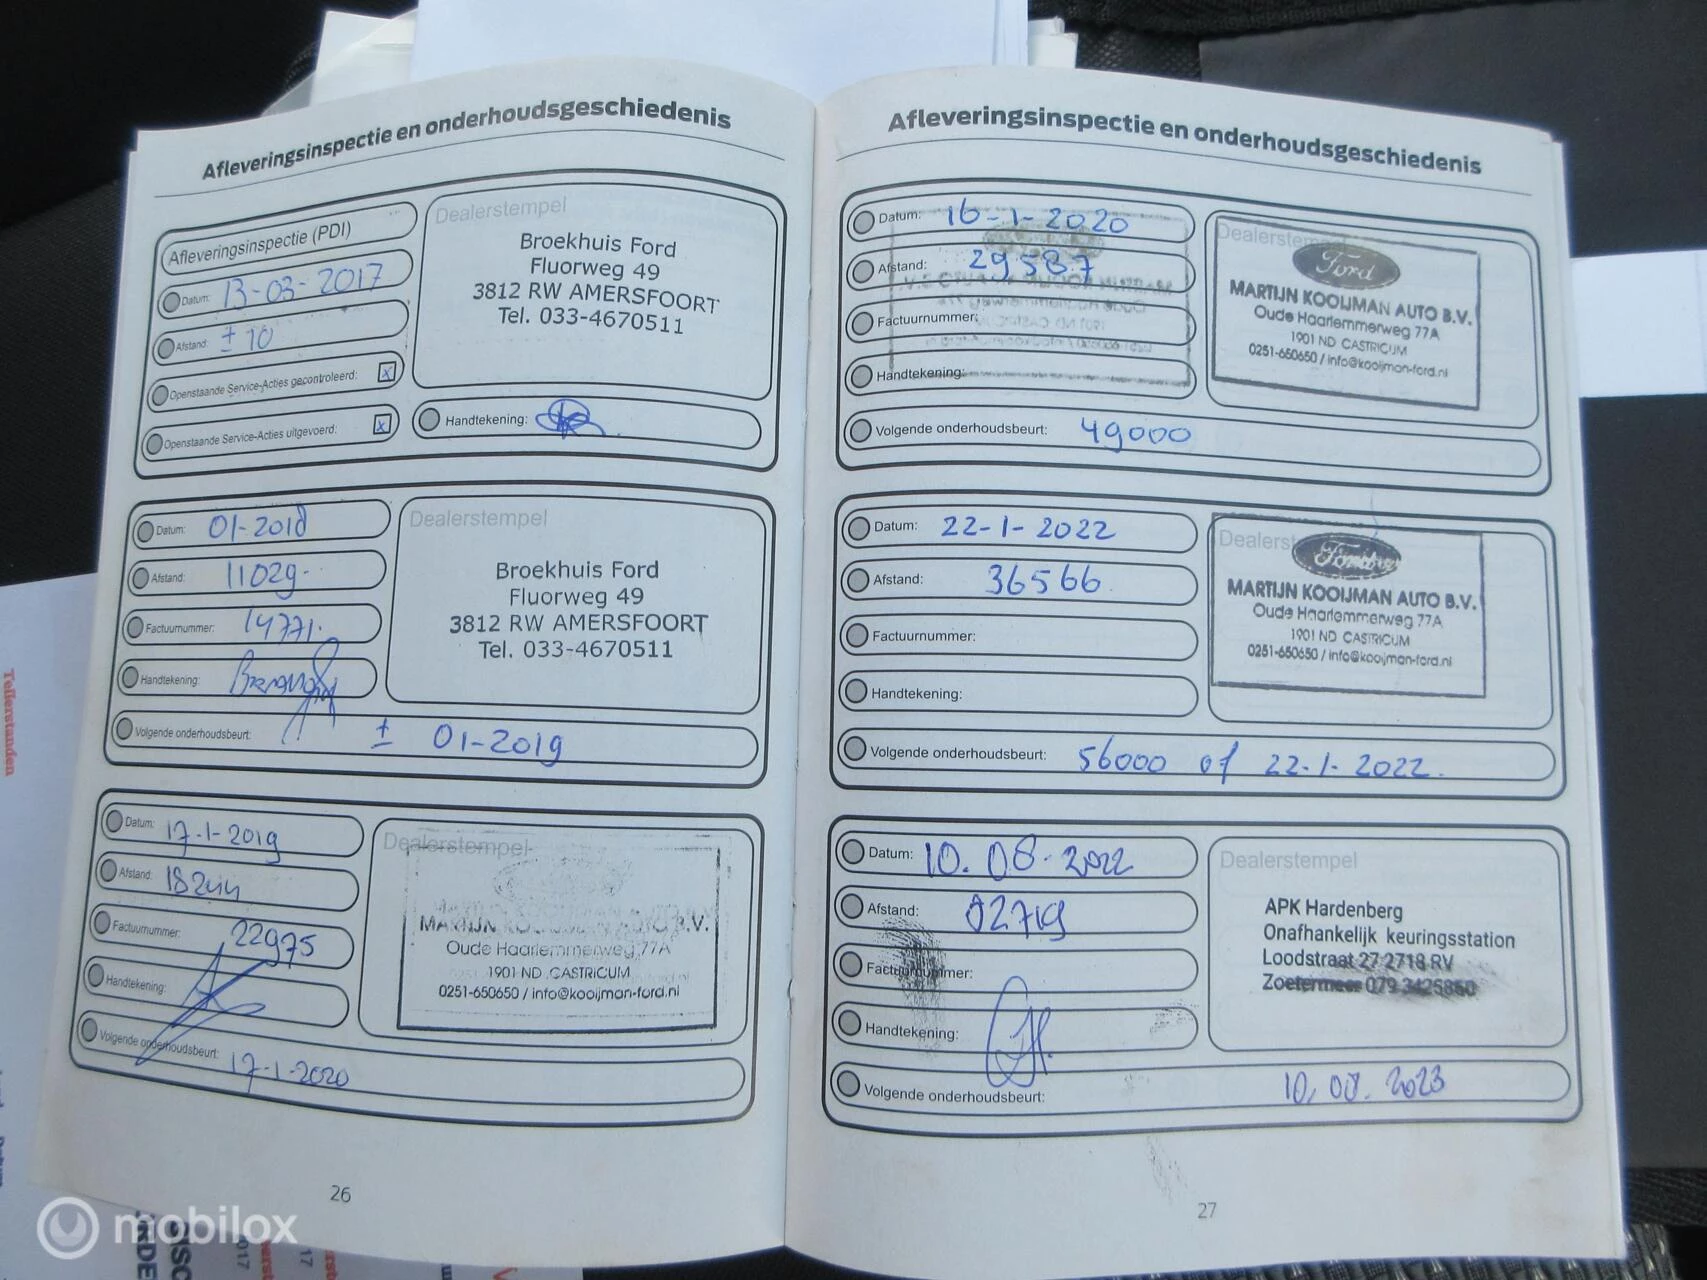 Afleveringsinspectie en onderhoudsgeschiedenis
Afleveringsinspectie (PDI)
Datum: 13-03-2017
Afstand: ± 10
Openstaande Service-Acties gecontroleerd: x
Openstaande Service-Acties uitgevoerd: x
Dealerstempel
Broekhuis Ford
Fluorweg 49
3812 RW AMERSFOORT
Tel. 033-4670511
Handtekening:
Datum: 01-2018
Afstand: 11029-
Factuurnummer: 14771.
Handtekening:
Volgende onderhoudsbeurt: ± 01-2019
Dealerstempel
Broekhuis Ford
Fluorweg 49
3812 RW AMERSFOORT
Tel. 033-4670511
Datum: 17-1-2019
Afstand:
Factuurnummer: 22975
Handtekening:
Volgende onderhoudsbeurt: 17-1-2020
Dealerstempel
MARTIJN KOOIJMAN AUTO B.V.
Oude Haarlemmerweg 77A
1901 ND CASTRICUM
0251-650650 / info@kooijman-ford.nl
26
Afleveringsinspectie en onderhoudsgeschiedenis
Datum: 16-1-2020
Afstand: 29587
Factuurnummer:
Handtekening:
Volgende onderhoudsbeurt: 49000
Dealerstempel
Ford
MARTIJN KOOIJMAN AUTO B.V.
Oude Haarlemmerweg 77A
1901 ND CASTRICUM
0251-650650 / info@kooijman-ford.nl
Datum: 22-1-2022
Afstand: 36566
Factuurnummer:
Handtekening:
Volgende onderhoudsbeurt: 56000 of 22-1-2022.
Dealerstempel
MARTIJN KOOIJMAN AUTO B.V.
Oude Haarlemmerweg 77A
1901 ND CASTRICUM
0251-650650 / info@kooijman-ford.nl
Datum: 10.08.2022
Afstand: 02719
Factuurnummer:
Handtekening:
Volgende onderhoudsbeurt: 10.08.2023
Dealerstempel
APK Hardenberg
Onafhankelijk keuringsstation
Loodstraat 27 2718 RV
Zoetermeer 079 3425850
27
Tellerstanden
mobilox